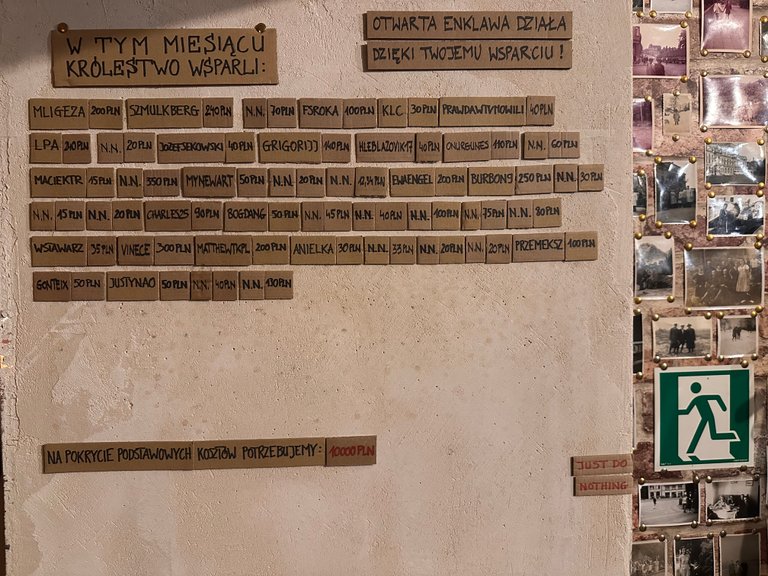 W TYM MIESIĄCU
KRÓLEŚTWO WSPARLI:
OTWARTA ENKLAWA DZIAŁA
DZIĘKI TWOJEMU WSPARCIU!
MLIGEZA 200PLN SZMULKBERG 240PLN N.N. 70PLN FSROKA 100PLN KLC 30PLN PRAWDAWTVNOWILI 40PLN
LPA 210PLN N.N. 20PLN JOZEFSEKOWSKI 40PLN GRIGORIJJ 140PLN HLEBLAZOVIK17 40PLN ONURGUNES 110PLN N.N. 60PLN
MACIEKTR 15PLN N.N. 350PLN MYNEWART 50PLN N.N. 20PLN N.N. 12,34PLN EWAENGEL 200PLN BURBON9 250PLN N.N. 30PLN
N.N. 15PLN N.N. 20PLN CHARLES25 90PLN BOGDANG 50PLN N.N. 45PLN N.N. 40PLN N.N. 100PLN N.N. 75PLN N.N. 80PLN
WSTAWARZ 35PLN VINECE 300PLN MATTHEWTKPL 200PLN ANIELKA 30PLN N.N. 33PLN N.N. 20PLN N.N. 20PLN PRZEMEKSZ 100PLN
GONTEIX 50PLN JUSTYNAO 50PLN N.N. 40PLN N.N. 130PLN
NA POKRYCIE PODSTAWOWYCH KOSZTÓW POTRZEBUJEMY: 10000PLN
JUST DO
NOTHING